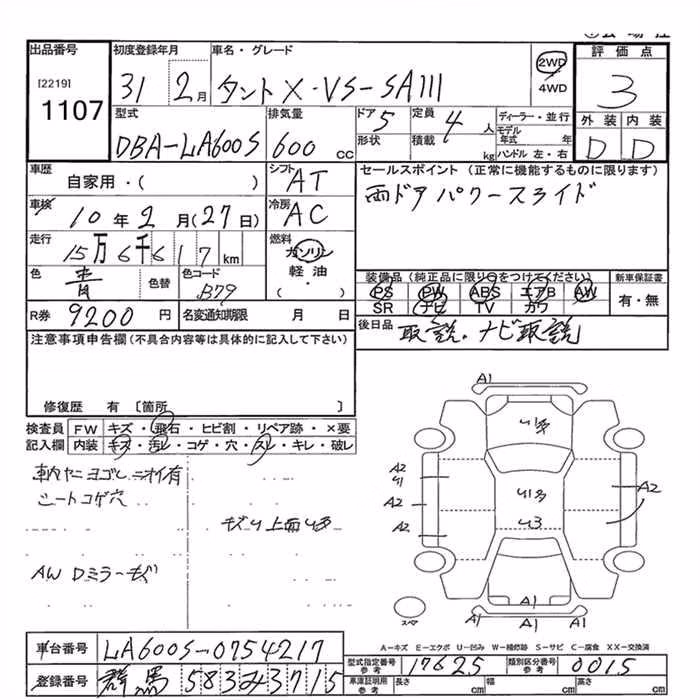 出品番号 初度登録年月 車名・グレード 評価点
[2219] 31 2月 タントX・VS-SAIII 2WD 4WD 3
1107 型式 排気量 ドア 5 定員 4人 ディーラー・並行 外装 内装
DBA-LA600S 600cc 形状 積載 kg モデル年式 年 ハンドル 左・右 D D
車歴 自家用・( ) シフト AT セールスポイント (正常に機能するものに限ります)
車検 10年2月(27日) 冷房 AC 両ドアパワースライド
走行 15万6千617km 燃料 ガソリン 軽油 ・( )
色 青 色替 色コード B79 装備品(純正品に限り○をつけてください) 新車保証書
PS PW ABS エアB AW 有・無
SR ナビ TV カワ
R券 9200円 名変通知期限 月 日 後日品 取説、ナビ取説
注意事項申告欄(不具合内容等は具体的に記入して下さい)
修復歴 有 〔箇所 〕
検査員 FW キズ・飛石・ヒビ割・リペア跡・×要
記入欄 内装 キズ・汚レ・コゲ・穴・スレ・キレ・破レ
車内ヤニヨゴレニオイ有
シートコゲ穴
AW Dミラーキズ
A1
A2
A2
A2
A2
U3
A1
A1 A1
スペア
A-キズ E-エクボ U-凹み W-補修跡 S-サビ C-腐食 XX-交換済
車台番号 LA600S-0754217 型式指定番号 参考 17625 類別区分番号 参考 0015
登録番号 群馬 583み3715 車庫証明用 参考 長さ cm 幅 cm 高さ cm